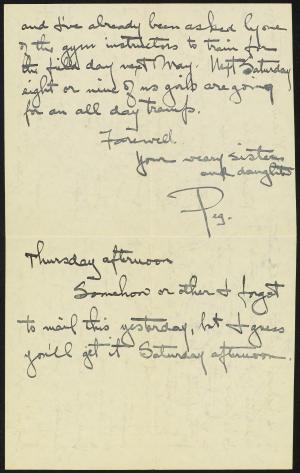 and I've already been asked by one
of the gym instructors to train for
the field day next May. Next Saturday
eight or nine of us girls are going
for an all day tramp.
Farewell.
Your weary sister
and daughter
Peg.
Thursday afternoon
Somehow or other I forgot
to mail this yesterday, but I guess
you'll get it Saturday afternoon.